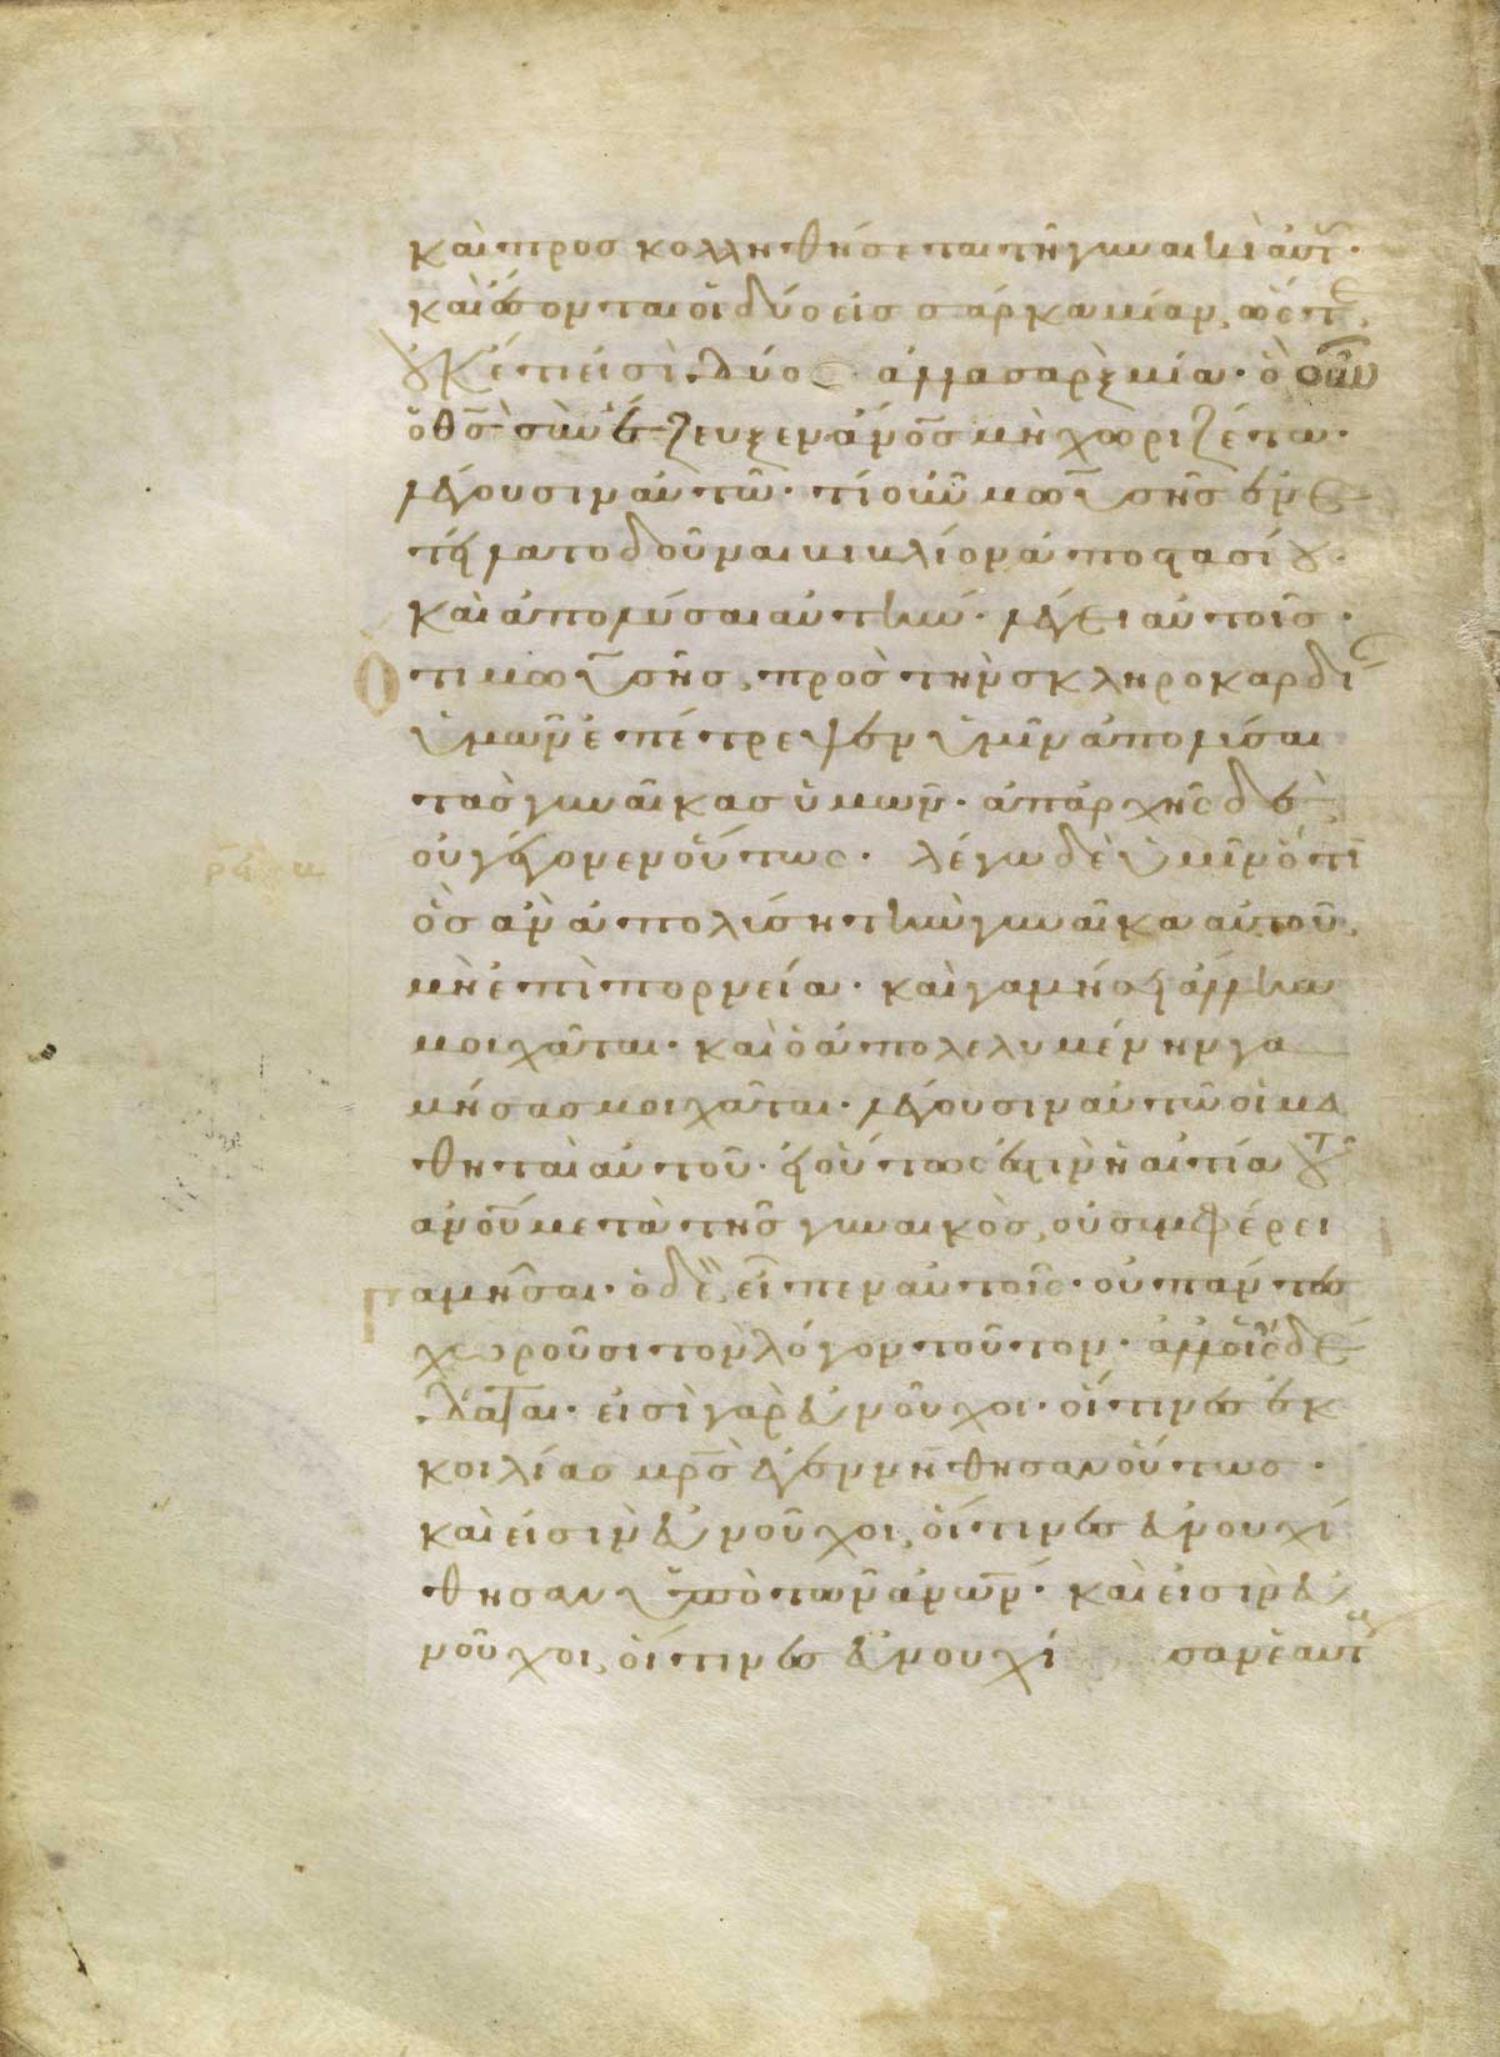 καὶ προσκολληθήσεται τῆ γυναικὶ αὐτ̑·
καὶ ἔσονται οἱ δύο εἰς σάρκα μίαν, ὥστε
οὐκέτι εἰσὶ δύο· ἀλλὰ σὰρξ μία· ὃ οὖν
ὁ θ̅ς̅ συνέζευξεν ἄν̅ο̅ς̅ μὴ χωριζέτω·
λέγουσιν αὐτῶ· τί οὖν μωϋσῆς ἐνε
τείλατο δοῦναι βιβλίον ἀποστασίου·
καὶ ἀπολῦσαι αὐτήν· λέγει αὐτοῖς·
Ὅτι μωϋσῆς, πρὸς τὴν σκληροκαρδί
ὑμῶν ἐπέτρεψεν ὑμῖν ἀπολύσαι
τὰς γυναῖκας ὑμῶν· ἀπαρχῆς δὲ
οὐ γέγονεν οὕτως· λέγω δὲ ὑμῖν ὅτι
ὃς ἂν ἀπολύση τὴν γυναῖκα αὐτοῦ,
μὴ ἐπὶ πορνεία· καὶ γαμήσει ἄλλην
μοιχᾶται· καὶ ὁ ἀπολελυμένην γα
μήσας μοιχᾶται· λέγουσιν αὐτῶ οἱ μα
θηταὶ αὐτοῦ· εἰ οὕτως ἐστὶν ἡ αἰτία τοῦ
ἀν̅ο̅υ̅ μετὰ τῆς γυναικὸς, οὐ συμφέρει
γαμῆσαι· ὁ δὲ εἶπεν αὐτοῖς· οὐ πάντες
χωροῦσι τὸν λόγον τοῦτον· ἀλλ' οἷς δέ
δοται· εἰσὶ γὰρ εὐνοῦχοι· οἵτινες ἐκ
κοιλίας μ̅ρ̅ς̅ ἐγεννήθησαν οὕτως·
καὶ εἰσὶν εὐνοῦχοι, οἵτινες εὐνουχί
θησαν ὑπὸ τῶν ἀν̅ω̅ν̅· καὶ εἰσὶν εὐ
νοῦχοι, οἵτινες εὐνουχί σαν ἑαυτ